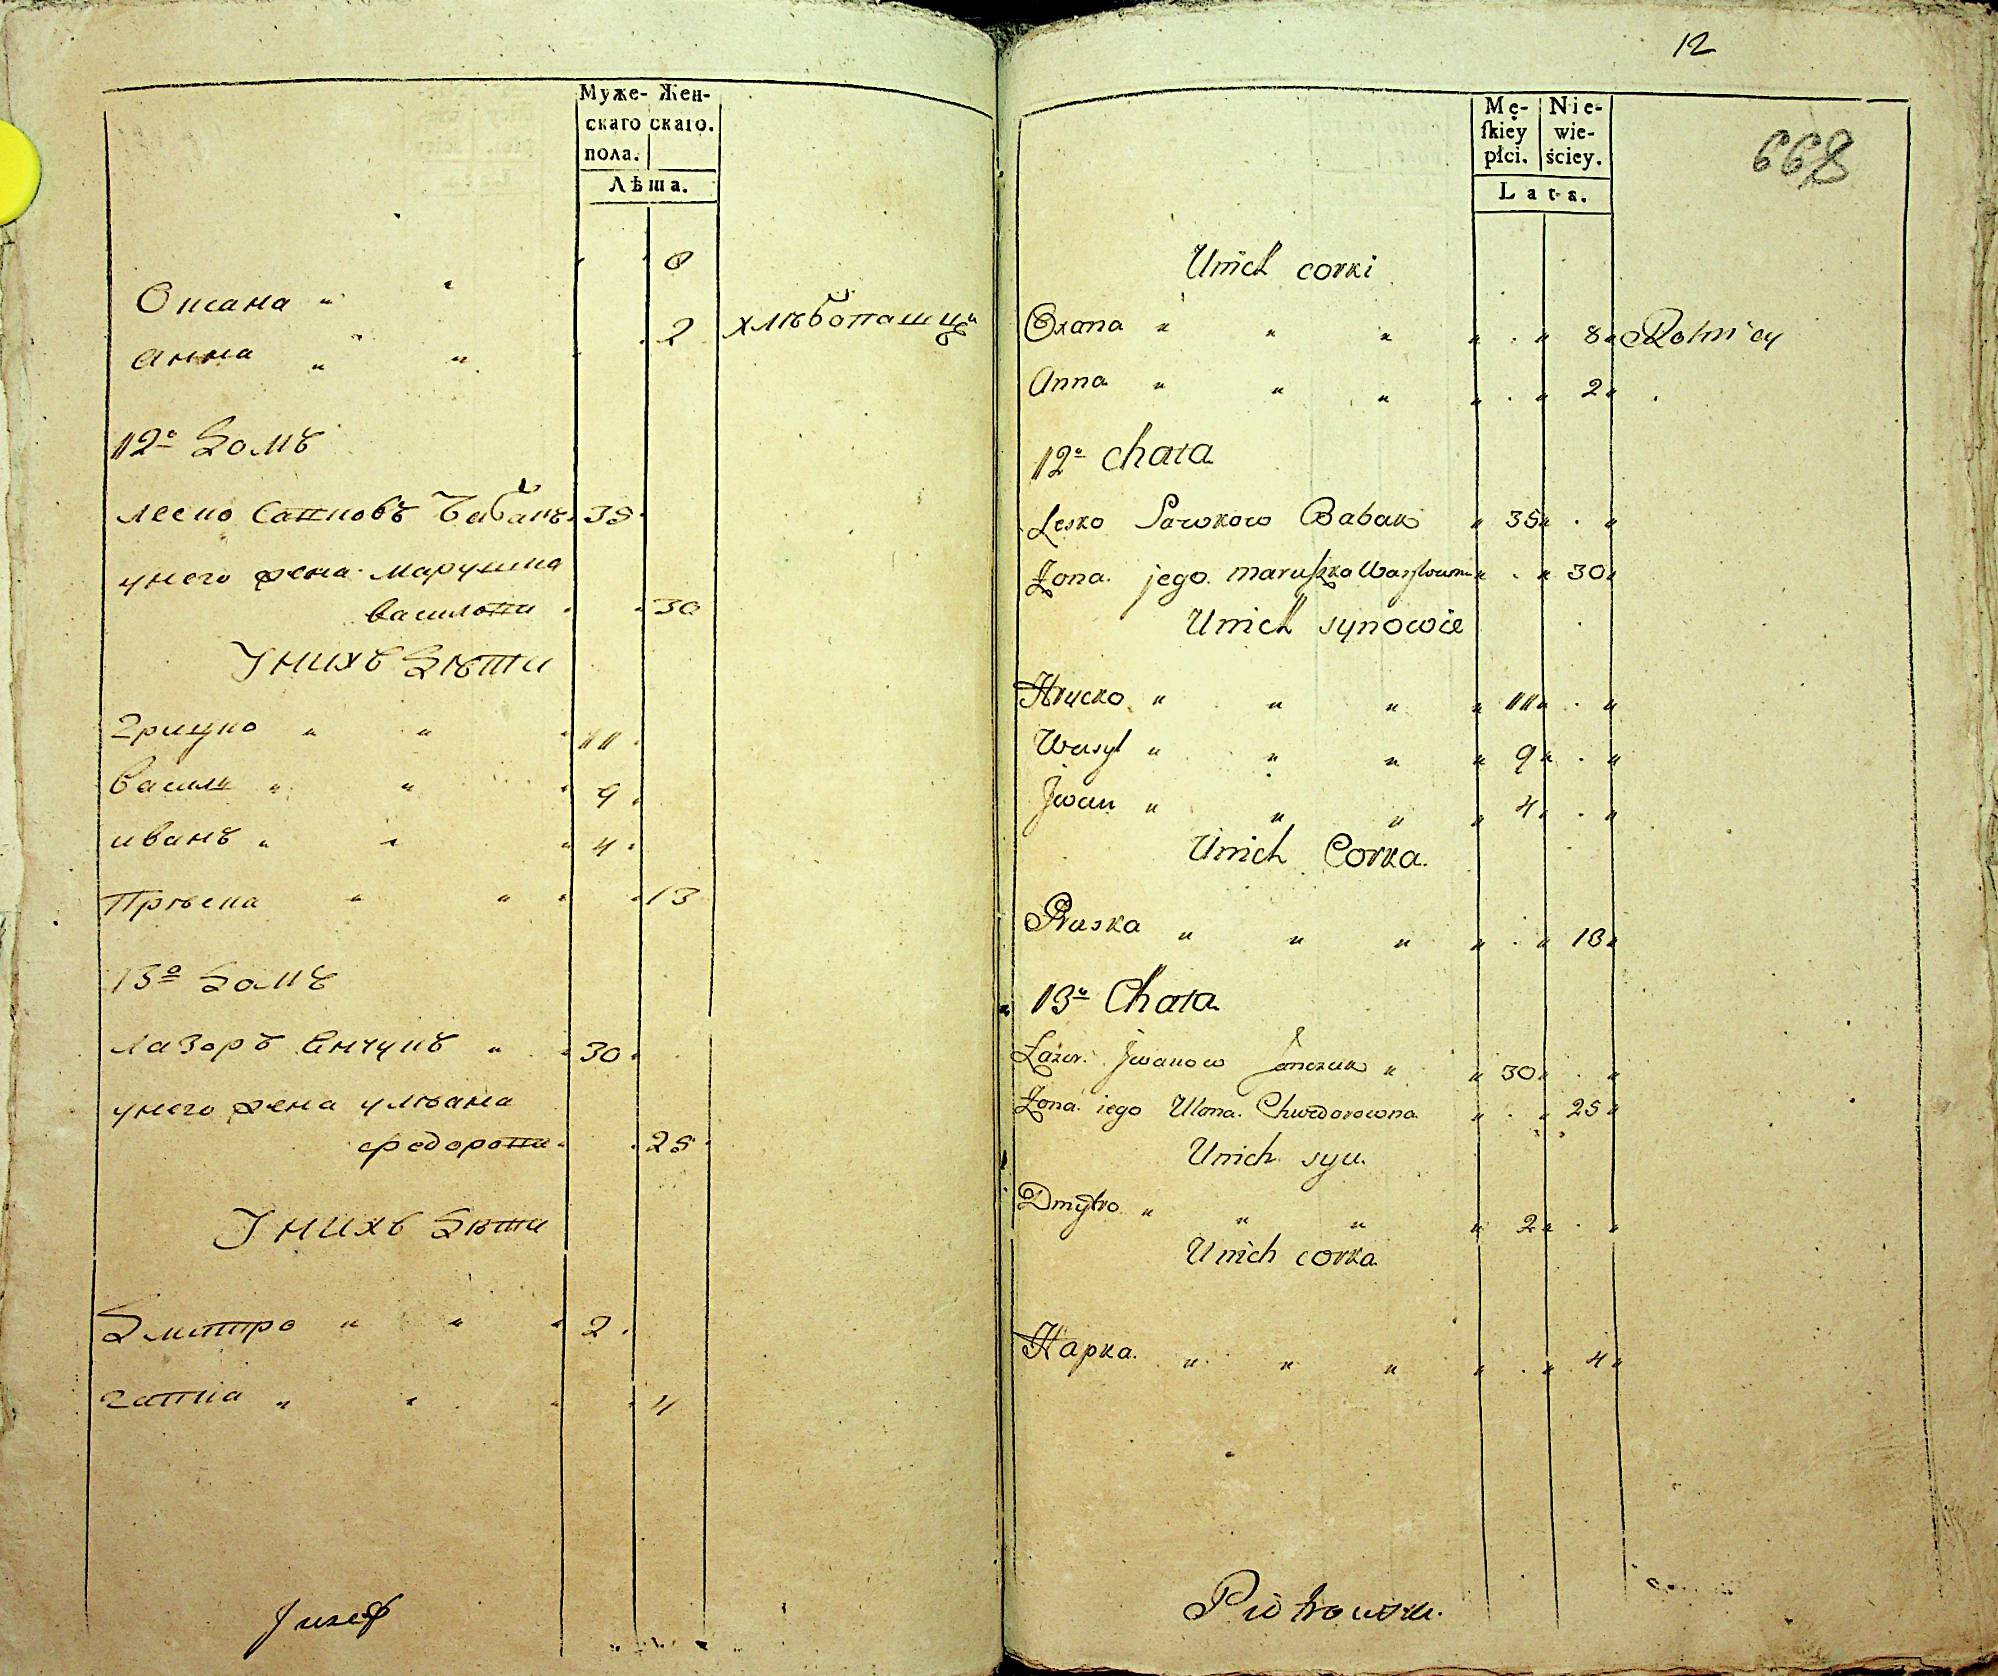 Муже- Жен-
скаго скаго.
пола.
Лѣта.
Оксана " " 8
Анна " " 2 хлѣбопашцы
12º Домъ
Леско Савковъ Бабакъ 35
у него жена Марушка
василова 30
У нихъ Дѣти
Грицко " " 11
Василь " " 9
иванъ " " 4
Прѣска " " 13
13º Домъ
Лазоръ Янчукъ " 30
у него жена улѣана
федорова 25
У нихъ Дѣти
Дмитро " " 2
гапка " " 4
Juzef
12
668
Mę- Nie-
ſkiey wie-
płci. ściey.
Lata.
Unich corki
Oxana " " " 8 Rolnicy
Anna " " " 2
12º Chata
Lesko Sawkow Babak " 35
Żona jego Maruszka Wasylowna 30
Unich synowie
Hrycko " " " 11
Wasyl " " " 9
Jwan " " " 4
Unich Corka
Praska " " " 13
13º Chata
Łazor Jwanow Janczuk " 30
Żona iego Ulana Chwedorowna 25
Unich syn
Dmytro " " " 2
Unich corka
Hapka " " " 4
Piotrowski